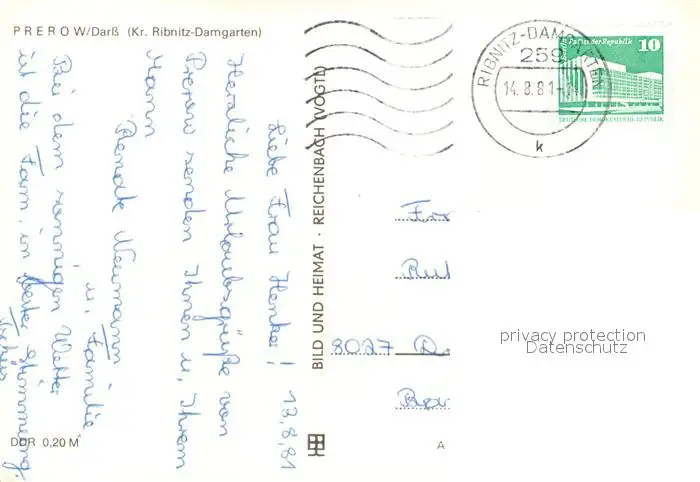 PREROW/Darß (Kr. Ribnitz-Damgarten)
13.8.81
Liebe Frau Henker!
Herzliche Urlaubsgrüße von
Prerow senden Ihnen u. Ihrem
Mann
Renate Neumann
u. Familie
Bei dem sonnigen Wetter
ist die Fam. in bester Stimmung.
DDR 0,20 M
BILD UND HEIMAT · REICHENBACH (VOGTL)
RIBNITZ-DAMGARTEN
259
14.8.81
k
Palast der Republik 10
DEUTSCHE DEMOKRATISCHE REPUBLIK
8027 D
privacy protection
Datenschutz
A